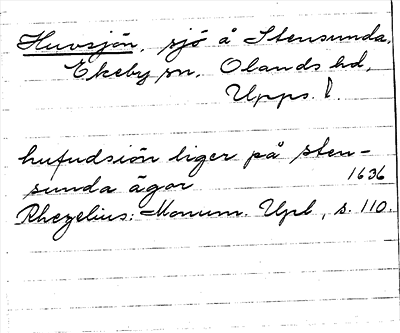 Huvsjön, sjö å Stensunda,
Ekeby sn, Olands hd,
Upps. l.
hufudsiön liger på sten-
sunda ägor 1636
Rhezelius: Monum. Upl, s. 110.